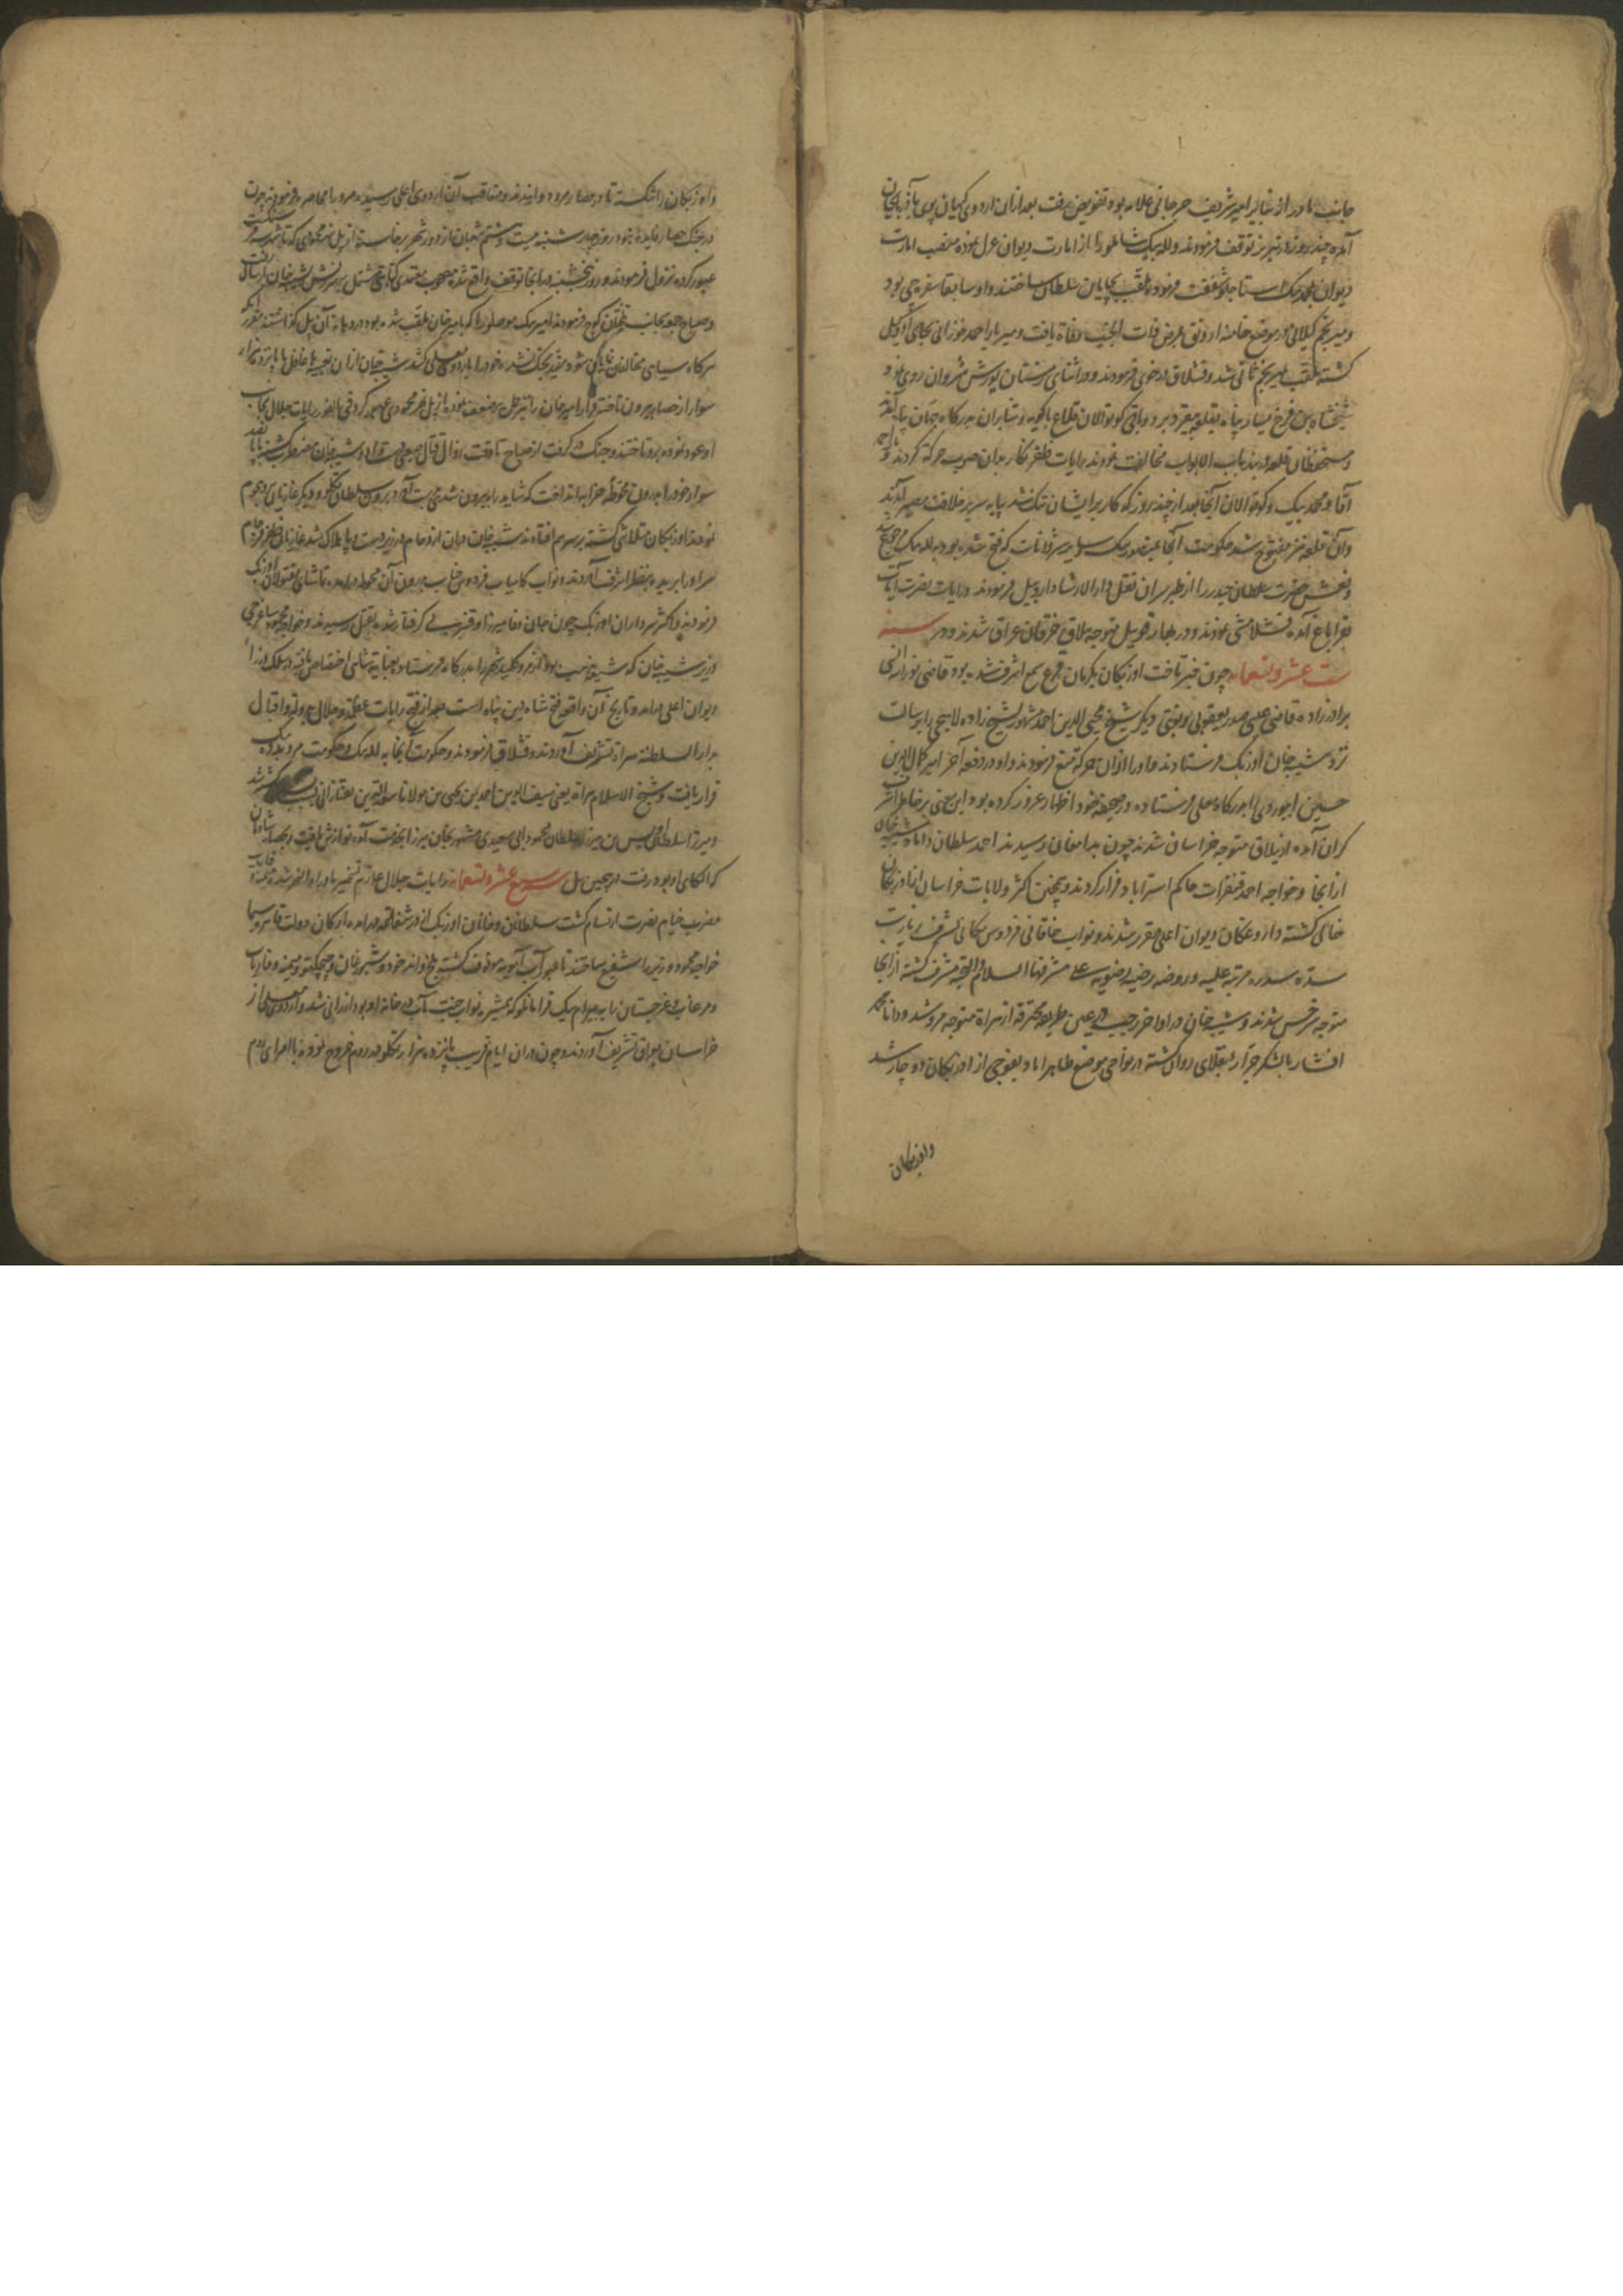 جانب مادر از بنایر امیر شریف جرجانی علامه بود تفویض رفت بعد از ان اردوی کیهان پوی بآذربایجان
آمده چند روز در تبریز توقف فرمودند و لله بیک شاملو را از امارت دیوان عزل نموده منصب امارت
دیوان بمحمد بیک استاجلو شفقت فرمودند ملقب بچایان سلطان ساختند و او سابقا سفره چی بود
و میر نجم گیلانی در موضع خامنه ارونق بمرض ذات الجنب وفاة یافت و میر یار احمد خوزانی بجای او وکیل
گشته ملقب بامیر نجم ثانی شد و قشلاق در خوی فرمودند و در اثنای زمستان یورش شروان روی نمود
شیخشاه بن فرخ یسار پناه بقلعه بیغرد برد و باقی کوتوالان قلاع باکویه و شابران بدرکاه جهان پناه آمدند
و مستحفظان قلعه دربند باب الابواب مخالفت نمودند رایات ظفر نکار بدان صوب حرکة کردند و یار احمد
آقا و محمد بیک و کوتوالان آنجا بعد از چند روز که کار بر ایشان تنک شد بپایه سریر خلافت مصیر آمدند
وان قلعه نیز مفتوح شد حکومت آنجا بمنصور بیک و سایر شروانات که فتح شده بود به لله بیک رجوع شد
و نعش حضرت سلطان حیدر را از طبرسران نقل دار الارشاد اردبیل فرمودند و رایات نصرت آیات
بقراباغ آمده قشلامشی نمودند و در بهار قویل متوجه یلاق خرقان عراق شدند و در سنه
ست عشر و تسعمایه چون خبر تاخت اوزبکان بکرمان مسموع اشرف شده بود قاضی نور الله
برادر زاده قاضی عیسی صدر یعقوبی نوبتی و دیگر شیخ محیی الدین احمد مشهور بشیخ زاده لاهیجی را برسالت
نزد شیبک خان اوزبک فرستادند و او را از ان حرکة منع فرمودند و او در دفعه آخر امیر کمال الدین
حسین ابیوردی را بدرکاه معلی فرستاده در صحیفه خود اظهار غرور کرده بود این معنی بر خاطر اشرف
کران آمده از یلاق متوجه خراسان شدند چون بدامغان رسیدند احمد سلطان داماد شیبک خان
از انجا و خواجه احمد قنقرات حاکم استراباد فرار کردند و همچنین اکثر ولایات خراسان از اوزبکان
خالی گشته داروغکان دیوان اعلی مقرر شدند و نواب خاقانی فردوس مکانی بشرف زیارت
سده سدره مرتبه علیه و روضه رضیه رضویه علی مشرفها السلام و التحیة مشرف گشته از انجا
متوجه سرخس شدند و شیبک خان در اواخر رجب از هراة متوجه مرو شد و دانا محمد
افشار با لشکر جرار بمنقلای روان گشته در نواحی موضع طاهراباد بفوجی از اوزبکان دو چار شد
و اوزبکان
و اوزبکان را شکسته تا در حصار مرو دوانیدند و متعاقب آن اردوی اعلی رسیده مرو را محاصره فرمودند چون
در جنک حصار فایده نبود روز چهارشنبه بیست و هشتم شعبان از دور شهر برخاسته از پل نهر محمودی که تا شهر سه فرسخ است
عبور کرده نزول فرمودند و روز پنجشنبه در انجا توقف واقع شد مصحوب معتمدی کتابتی مشتمل بر سرزنش شیبک خان ارسال یافت
و صباح جمعه بجانب تلختان کوچ فرمودند امیر بیک موصلو را که بامیر خان ملقب شده بود در دهانه آن پل گذاشتند مقرر آنکه
هر کاه سیاهی مخالفان نمایان شود مقید بجنک نشده خود را باردوی معلی کشد شیبک خان از ان تعبیه غافل با پانزده هزار
سوار از حصار بیرون تاخته فرار امیر خان را نیز حمل بر ضعف نموده از پل نهر محمودی عبور کرد فی الفور رایات جلال بجانب
او عود نموده برو تاختند و جنک در گرفت از صباح تا وقت زوال قتال صعب دست داد و شیبک خان مضطرب گشته با پانصد
سوار خود را بدرون محوطه خرابه انداخت که شاید راه بیرون شدی بدست آورد برون سلطان تکلو و دیگر غازیان برو هجوم
نمودند اوزبکان متلاشی گشته بر سر هم افتادند شیبک خان در ان ازدحام در زیر دست و پا هلاک شد غازیان ظفر فرجام
سر او را بریده بنظر اشرف آوردند و نواب کامیاب فردوس مکانی بدرون آن محوطه درآمده تماشای مقتولان اوزبک
فرمودند و اکثر سرداران اوزبک چون جان وفا میرزا و قنبر بی گرفتار شده بقتل رسیدند و خواجه محمود ساغرجی
وزیر شیبک خان که شیعه مذهب بود از مرو کلید شهر را بدرکاه فرستاده بعنایة شاهی اختصاص یافته در سلک وزرا
دیوان اعلی درآمد و تاریخ آن واقعه فتح شاه دین پناه است بعد از فتح رایات عظمة و جلال بدولة و اقبال
بدار السلطنه هراة تشریف آوردند و قشلاق فرمودند و حکومت آنجا به لله بیک و حکومت مرو بده ده بیک
قرار یافت و شیخ الاسلام هراة یعنی سیف الدین احمد بن یحیی بن مولانا سعد الدین تفتازانی کشته شد
و میرزا سلطان اویس بن میرزا سلطان محمود ابی سعیدی مشهور بخان میرزا بخدمت آمده نوازش یافت و بحصار شادمان
که الکای او بود رفت در همین سال سبع عشر و تسعمایه رایات جلال عازم تسخیر ماوراء النهر شده
مضرب خیام نصرت ارتسام کشت سلطانان و خانان اوزبک از در شفاعت درآمده ارکان دولت قاهره سیما
خواجه محمود وزیر را شفیع ساختند تا عبور آب آمویه موقوف گشته بلخ و اندخود و شبرغان و چیچکتو و میمنه و فاریاب
و مرغاب و غرجستان را به بیرام بیک قرامانلو که همشیره نواب جنت آشیانی در خانه او بود ارزانی شد و اردوی معلی از
خراسان بعراق تشریف آوردند و چون در ان ایام قریب پانزده هزار تکلو در روم خروج نموده با امرای روم